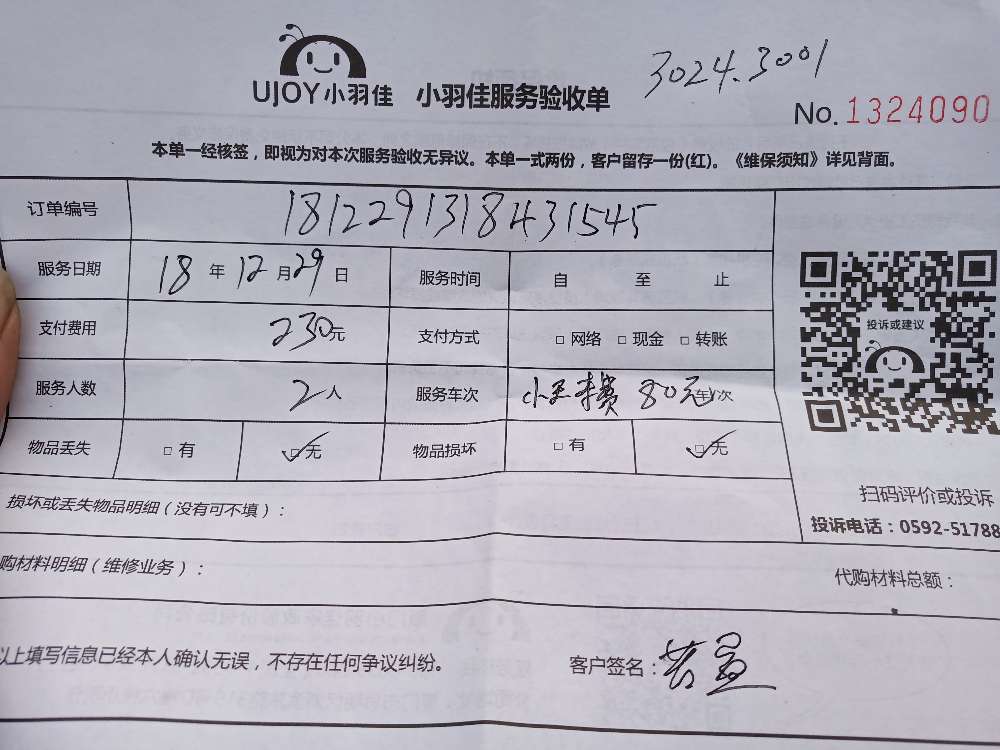 3024.3001
UJOY小羽佳 小羽佳服务验收单
No. 1324090
本单一经核签，即视为对本次服务验收无异议。本单一式两份，客户留存一份(红)。《维保须知》详见背面。
订单编号 1812291318431545
服务日期 18 年 12 月 29 日 服务时间 自 至 止
支付费用 230元 支付方式 □ 网络 □ 现金 □ 转账
投诉或建议
服务人数 2人 服务车次 费 80元 车/次
物品丢失 □ 有 ☑ 无 物品损坏 □ 有 ☑ 无
扫码评价或投诉
损坏或丢失物品明细（没有可不填）：
投诉电话：0592-51788
购材料明细（维修业务）： 代购材料总额：
以上填写信息已经本人确认无误，不存在任何争议纠纷。 客户签名：